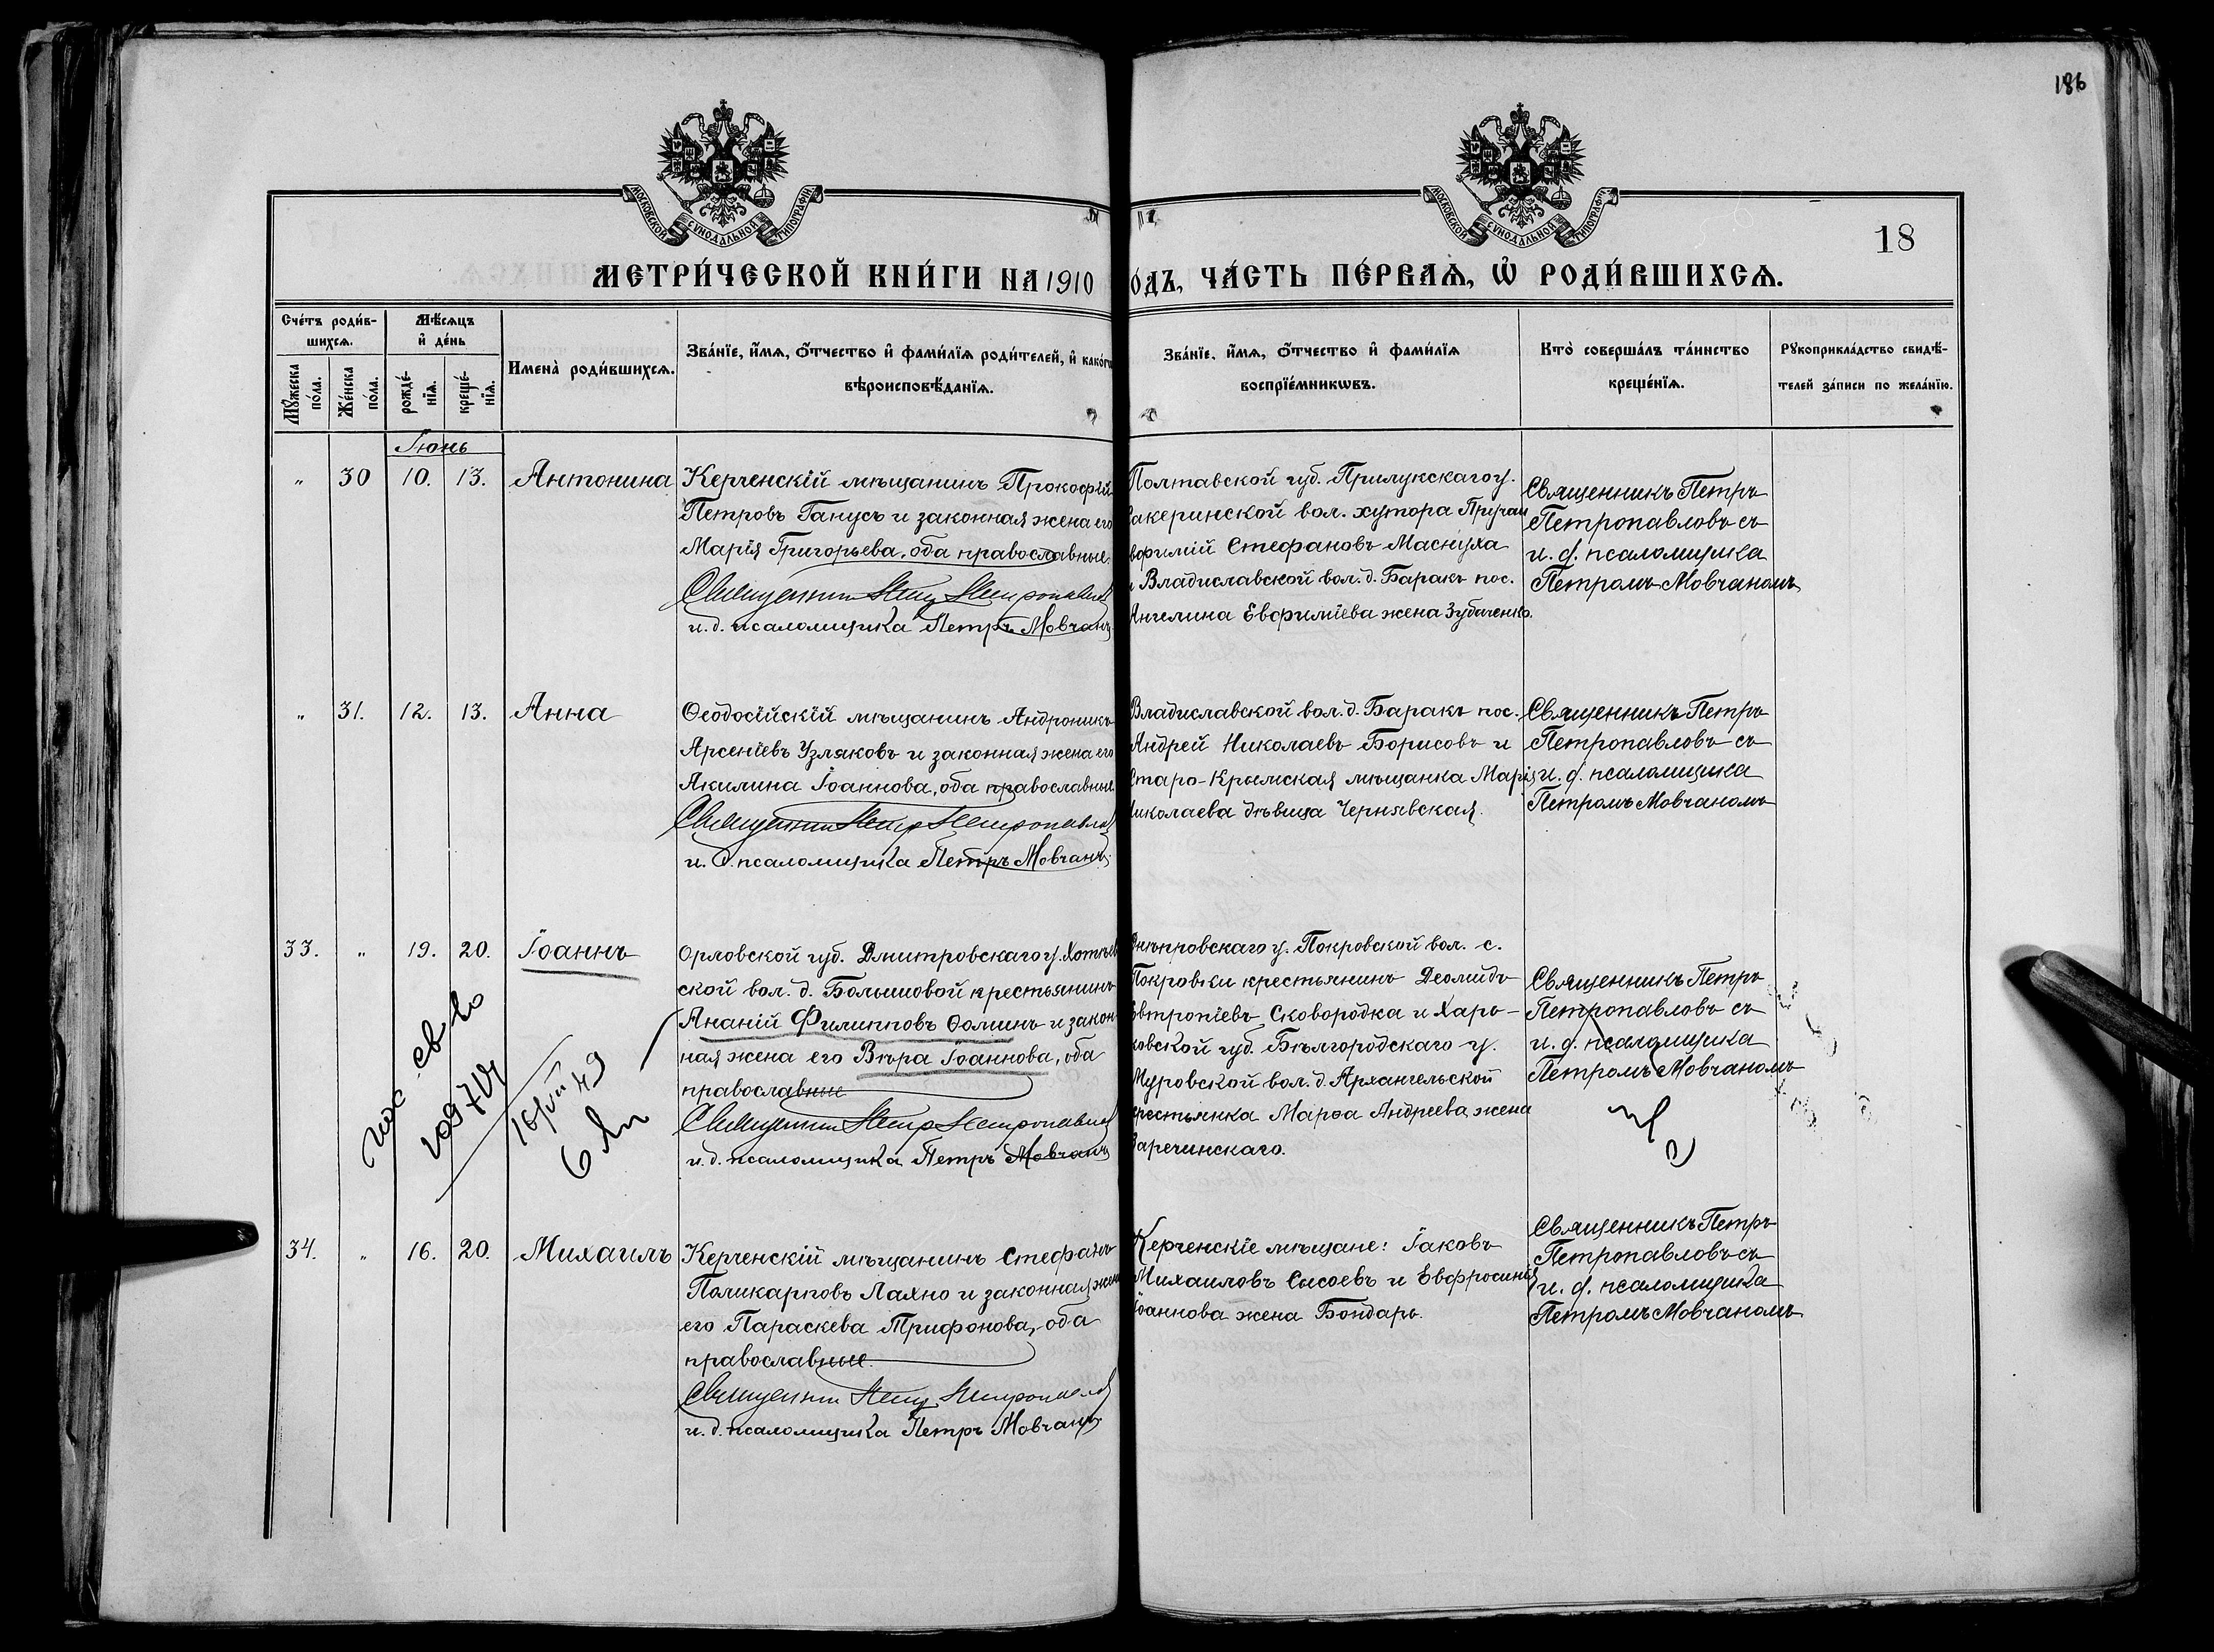 186
МОСКОВСКОЙ СѴНОДАЛЬНОЙ ТИПОГРАФІИ
МОСКОВСКОЙ СѴНОДАЛЬНОЙ ТИПОГРАФІИ
18
МЕТРИ́ЧЕСКОЙ КНИ́ГИ НА 1910
О́ДЪ, ЧА́СТЬ ПЕ́РВАѦ, Ѽ РОДИ́ВШИХСѦ.
Сче́тъ роди́в-
шихсѧ.
Мѣ́сѧцъ
и҆ де́нь
Мꙋ́жеска
по́ла.
Же́нска
по́ла.
рожде́-
нїѧ.
креще́-
нїѧ.
Имена̀ роди́вшихсѧ.
Зва́нїе, и҆́мѧ, ѻ҆́тчество и҆ фами́лїѧ роди́телей, и҆ како́гѡ
вѣроисповѣ́данїѧ.
Зва́нїе, и҆́мѧ, ѻ҆́тчество и҆ фами́лїѧ
воспрїе́мникѡвъ.
Кто̀ соверша́лъ та́инство
креще́нїѧ.
Рꙋкоприкла́дство свидѣ́-
телей за́писи по жела́нїю.
Іюнь
„ 30 10. 13. Антонина
Керченскій мѣщанинъ Прокофій
Петровъ Ганусъ и законная жена его
Марія Григорьева, оба православные.
Священникъ Петръ Петропавловъ
и. д. псаломщика Петръ Мовчанъ
Полтавской губ. Прилукскаго у.
вол. хутора
Стефановъ Маснуха
и Владиславской вол. д. Баракъ пос.
Ангелина Евфиміева жена Зубаченко.
Священникъ Петръ
Петропавловъ съ
и. д. псаломщика
Петромъ Мовчаномъ
„ 31. 12. 13. Анна
Ѳеодосійскій мѣщанинъ Андроникъ
Арсеніевъ Узляковъ и законная жена его
Акилина Іоаннова, оба православные
Священникъ Петръ Петропавловъ
и. д. псаломщика Петръ Мовчанъ
Владиславской вол. д. Баракъ пос.
Андрей Николаевъ Борисовъ и
Старо-Крымская мѣщанка Марія
Николаева дѣвица Чернявская.
Священникъ Петръ
Петропавловъ съ
и. д. псаломщика
Петромъ Мовчаномъ
33. „ 19. 20. Іоаннъ
Орловской губ. Дмитровскаго у. Хотѣев
ской вол. д. Большовой крестьянинъ
Ананій Филипповъ Ѳоминъ и закон
ная жена его Вѣра Іоаннова, оба
православные
Священникъ Петръ Петропавловъ
и. д. псаломщика Петръ Мовчанъ
Днѣпровскаго у. Покровской вол. с.
Покровки крестьянинъ Деомидъ
Евтропіевъ Сковородка и Харь-
ковской губ. Бѣлгородскаго у.
Муровской вол. д. Архангельской
крестьянка Марѳа Андреева жена
Заречинскаго.
Священникъ Петръ
Петропавловъ съ
и. д. псаломщика
Петромъ Мовчаномъ
св-во
34. „ 16. 20. Михаилъ
Керченскій мѣщанинъ Стефанъ
Поликарповъ Лахно и законная жена
его Параскева Трифонова, оба
православные.
Священникъ Петръ Петропавловъ
и. д. псаломщика Петръ Мовчанъ
Керченскіе мѣщане: Іаковъ
Михаиловъ Сысоевъ и Евфросинія
Іоаннова жена Бондарь.
Священникъ Петръ
Петропавловъ съ
и. д. псаломщика
Петромъ Мовчаномъ